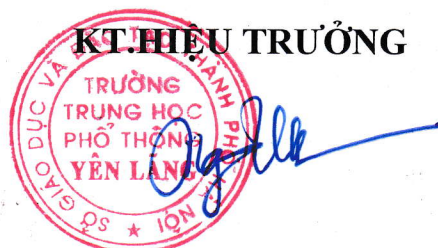 KT.HIỆU TRƯỞNG
SỞ GIÁO DỤC VÀ ĐÀO TẠO THÀNH PHỐ HÀ NỘI
TRƯỜNG
TRUNG HỌC
PHỔ THÔNG
YÊN LÃNG